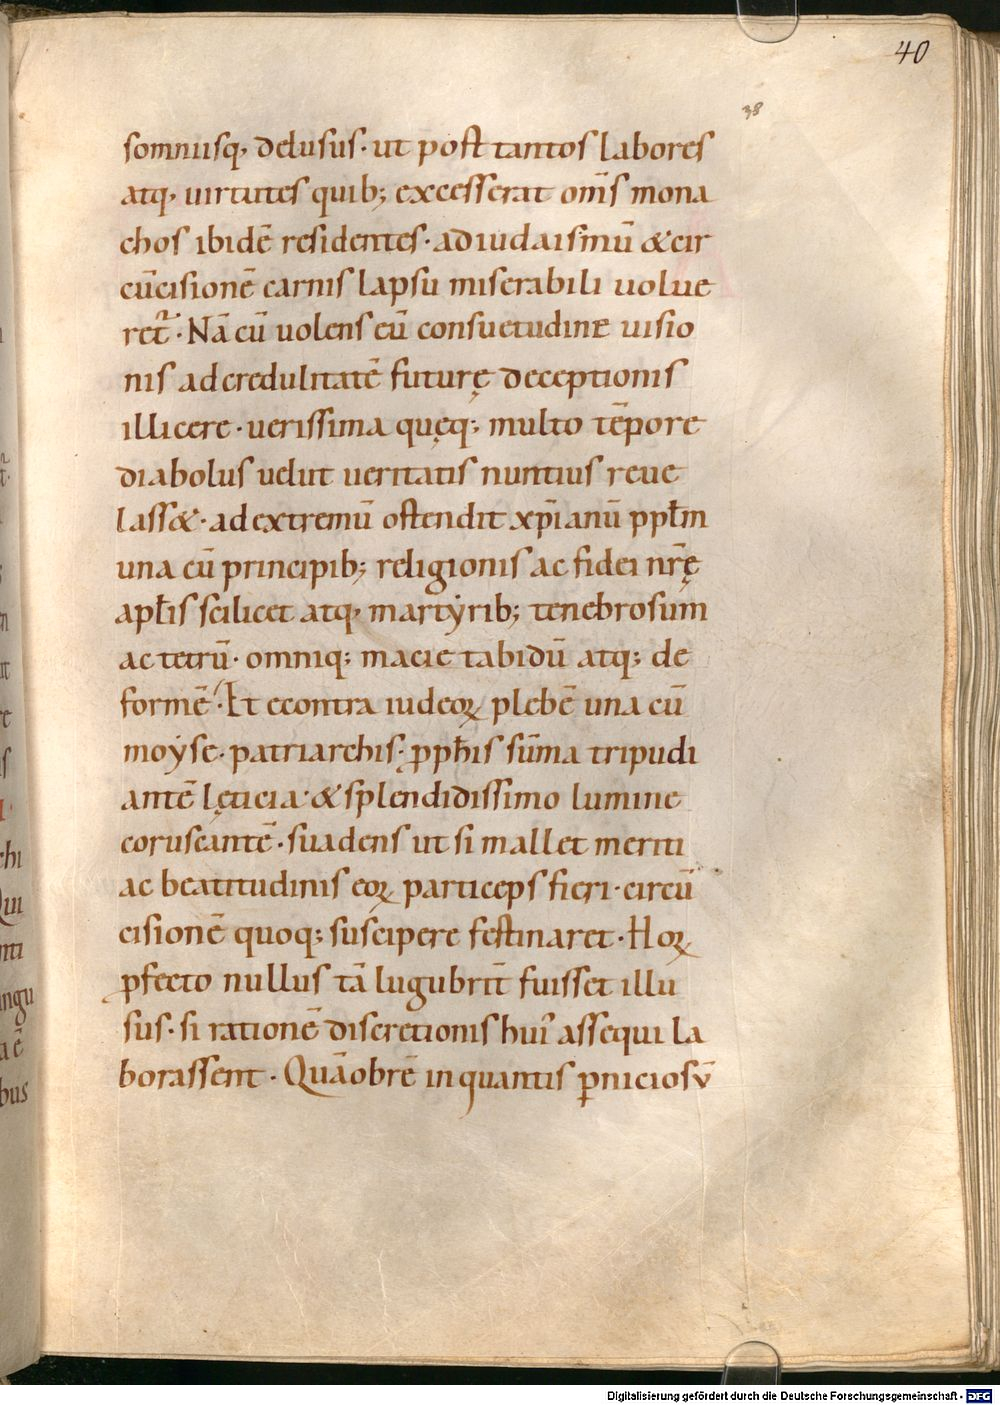 40
38
somniisq; delusus. ut post tantos labores
atq; uirtutes quib; excesserat om̄s mona
chos ibidē residentes. ad iudaismū & cir
cūcisionē carnis lapsu miserabili uolue
ret᷑. Nā cū uolens eū consuetudine uisio
nis ad credulitatē futurę deceptionis
illicere. uerissima quęq; multo tēpore
diabolus uelut ueritatis nuntius reue
lass&. ad extremū ostendit xp̄ianū pplm̄
una cū principib; religionis ac fidei nr̄ę
apl̄is scilicet atq; martẏrib; tenebrosum
ac tetrū. omniq; macie tabidū atq; de
formē. Et econtra iudeoꝝ plebē una cū
moẏse. patriarchis. ꝓph̄is sūma tripudi
antē lęticia. & splendidissimo lumine
coruscantē. suadens ut si mallet meriti
ac beatitudinis eoꝝ particeps fieri. circū
cisionē quoq; suscipere festinaret. Hoꝝ
ꝓfecto nullus tā lugubrit̄ fuisset illu
sus. si rationē discretionis hui᷒ assequi la
borassent. Quāobrē in quantis ꝑniciosū
Digitalisierung gefördert durch die Deutsche Forschungsgemeinschaft - DFG